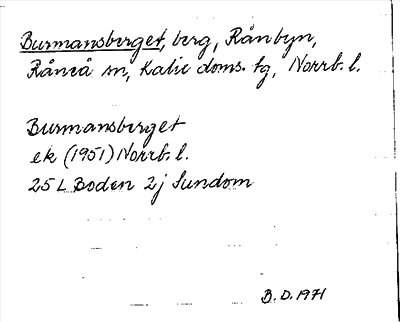 Burmansberget, berg, Rånbyn,
Råneå sn, Kalix doms. tg, Norrb. l.
Burmansberget
ek (1951) Norrb. l.
25 L Boden 2j Sundom
B. D. 1971